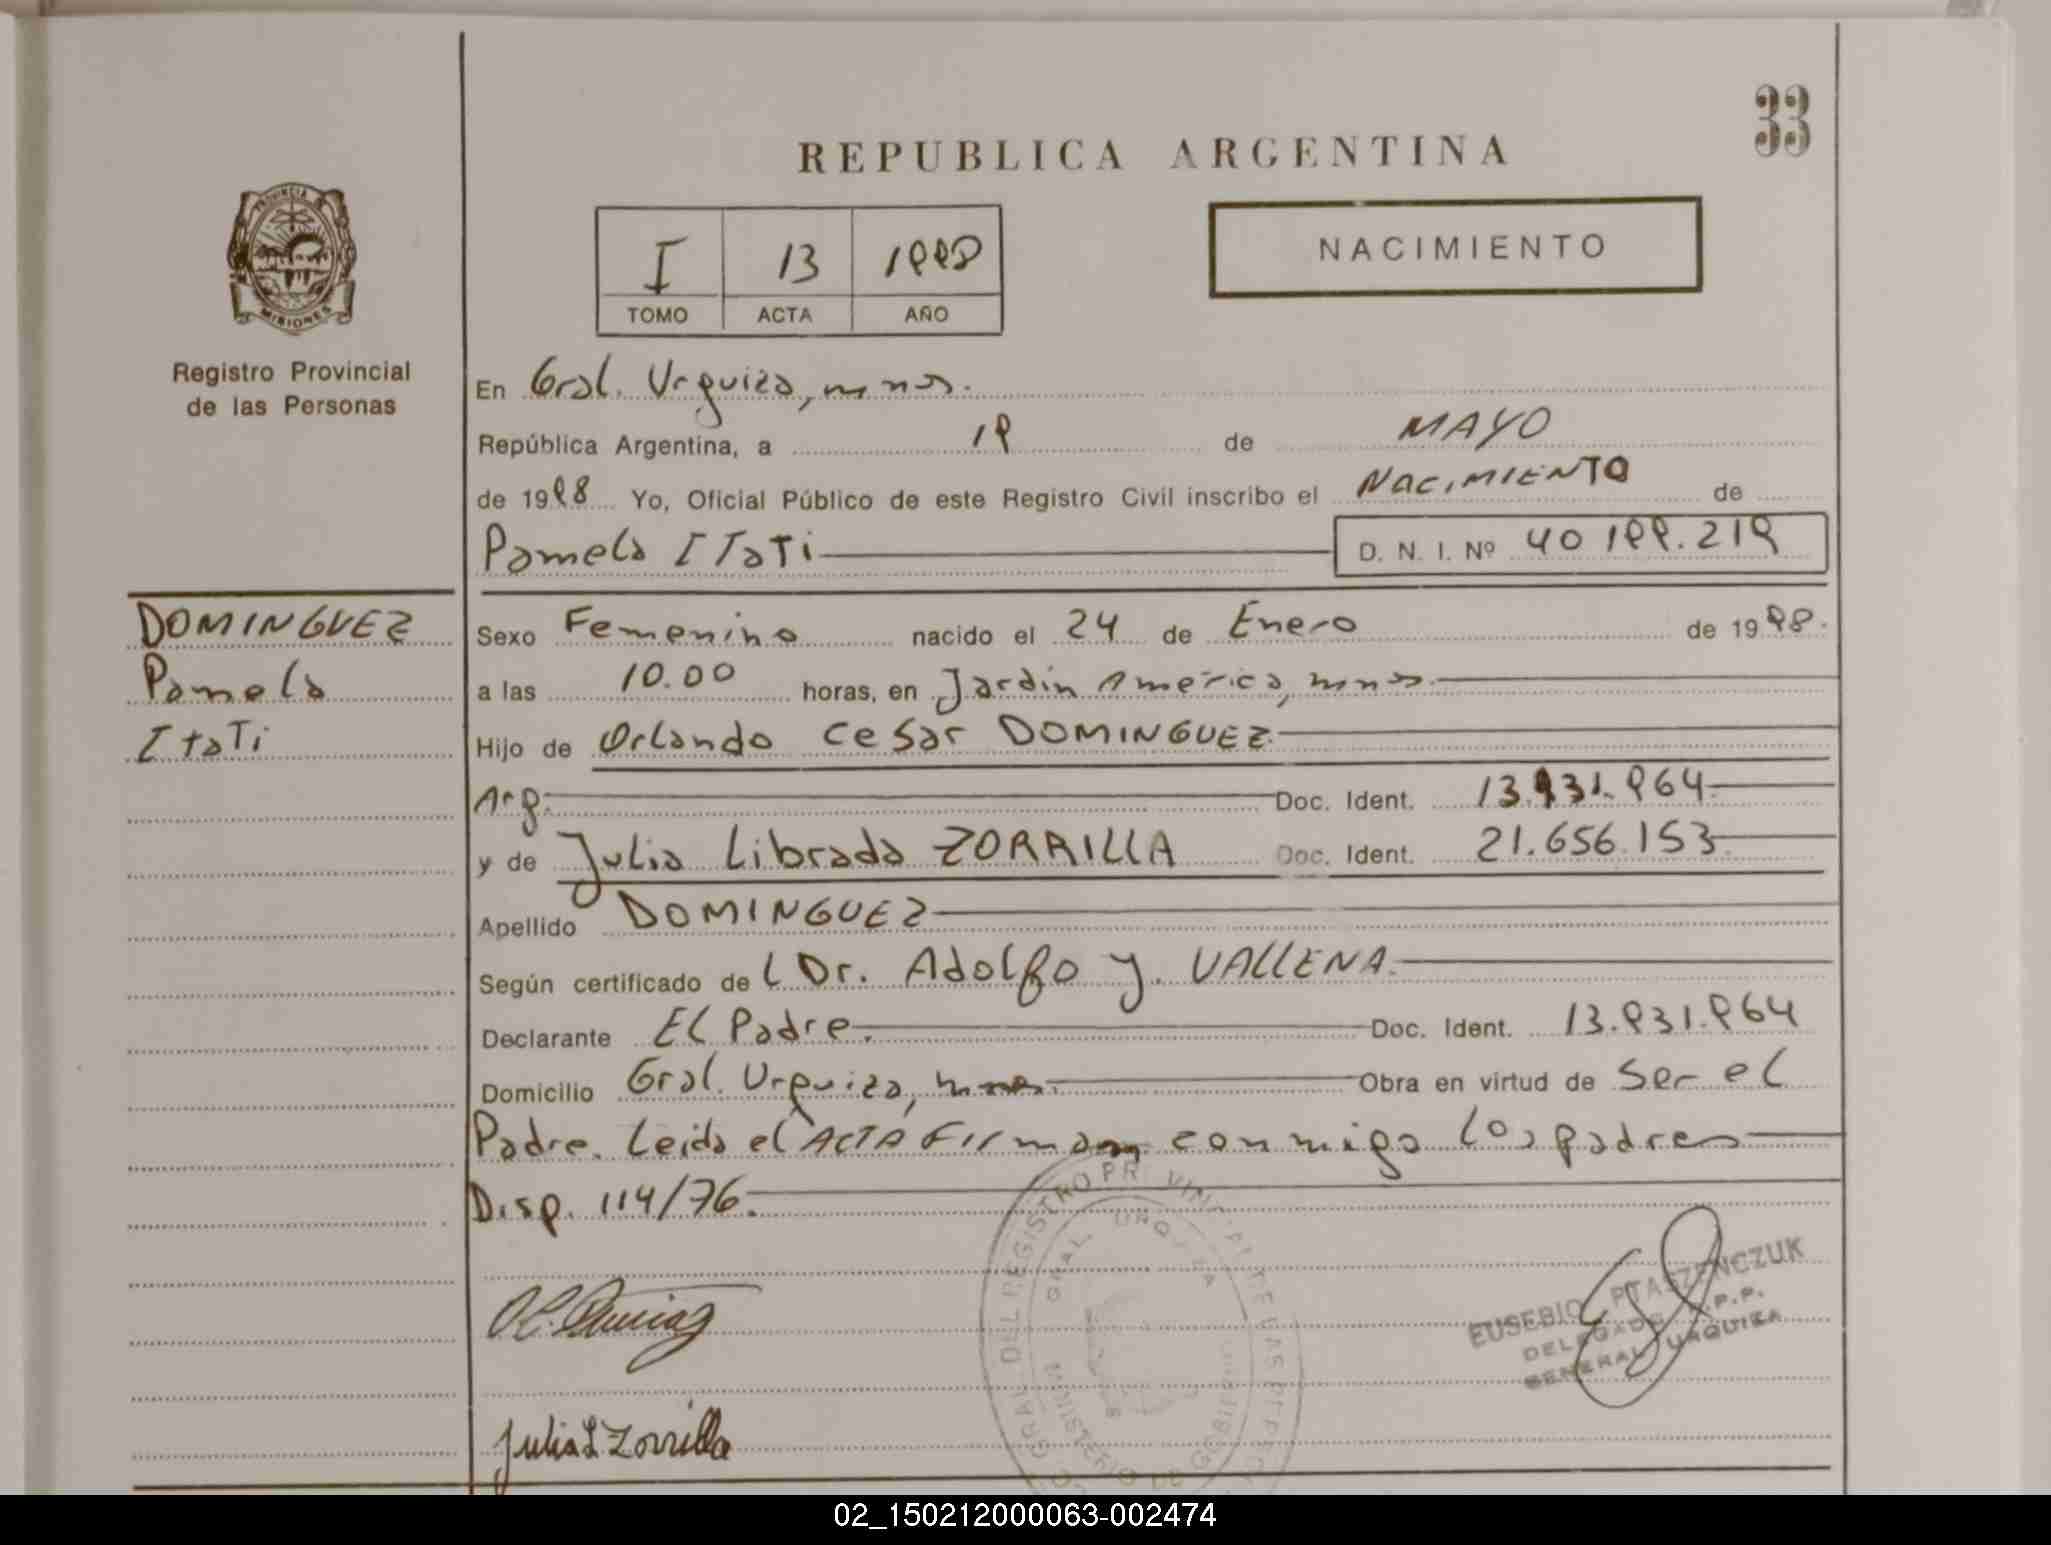 33
REPUBLICA ARGENTINA
PROVINCIA DE
MISIONES
Registro Provincial
de las Personas
I 13 1998
TOMO ACTA AÑO
NACIMIENTO
En Gral. Urquiza, mnes.
República Argentina, a 19 de MAYO
de 1998 Yo, Oficial Público de este Registro Civil inscribo el NACIMIENTO de
Pamela ITaTi D. N. I. Nº 40 199.219
DOMINGUEZ
Pamela
ItaTi
Sexo Femenino nacido el 24 de Enero de 1998.
a las 10.00 horas, en Jardin America, mnes.
Hijo de Orlando Cesar DOMINGUEZ.
Arg. Doc. Ident. 13.931.964
y de Julia Librada ZORRILLA Doc. Ident. 21.656.153
Apellido DOMINGUEZ
Según certificado de L Dr. Adolfo Y. VALLENA.
Declarante EL Padre. Doc. Ident. 13.931.964
Domicilio Gral. Urquiza, mnes. Obra en virtud de Ser el
Padre. Leida el ACTA Firman conmigo los padres
Disp. 114/76.
EUSEBIO PTASZENCZUK
DELEGADO R.P.P.
GENERAL URQUIZA
Julia L Zorrilla
02_150212000063-002474